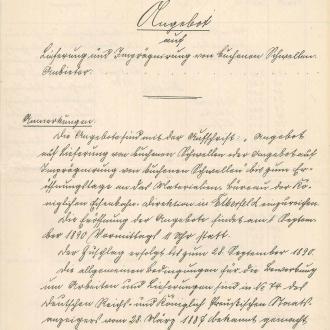 Angebot
auf
Lieferung und Imprägnirung von buchenen Schwellen.
Anbieter
Anmerkungen.
Die Angebote sind mit der Aufschrift: „Angebot
auf Lieferung von buchenen Schwellen oder Angebot auf
Imprägnirung von buchenen Schwellen bis zum Er-
öffnungstage an das Materialien-Büreau der Kö-
niglichen Eisenbahn-Direktion in Elberfeld einzureichen.
Die Eröffnung der Angebote findet am 1 Septem-
ber 1890, Vormittags 11 Uhr statt.
Der Zuschlag erfolgt bis zum 20. September 1890.
Die allgemeinen Bedingungen für die Bewerbung
um Arbeiten und Lieferungen sind in № 74 des
Deutschen Reichs- und Königlich Preußischen Staats-
anzeigers vom 28. März 1887 bekannt gemacht